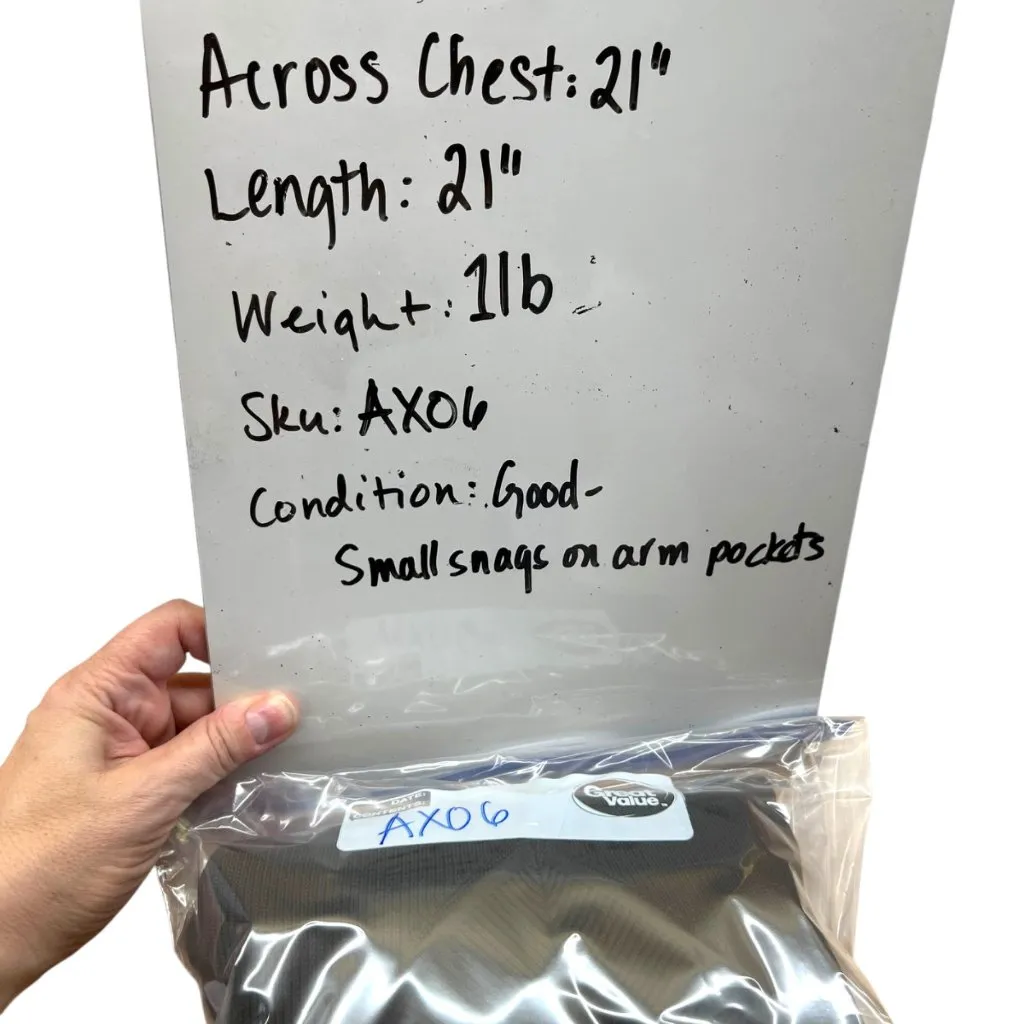 Across Chest: 21"
Length: 21"
Weight: 1lb
Sku: AX06
Condition: Good-
Small snags on arm pockets
DATE:
CONTENTS:
AX06
Great
Value™